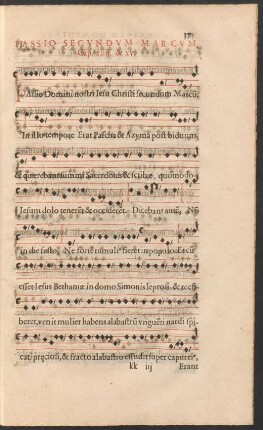 PASSIO SECVNDVM MARCVM
PAssio Domini nostri Iesu Christi secundum Marcũ.
In illo tempore Erat Pascha & Azyma post biduum,
& quærebant summi Sacerdotes & scribæ, quomodo
Iesum dolo tenerẽt & occiderẽt. Dicebant autẽ, Nõ
in die festo, Ne fortè tumultꝰ fieret in populo. Et cũ
esset Iesus Bethaniæ in domo Simonis leprosi, &
beret, venit mulier habens alabastrũ vnguẽti nardi spi,
cati preciosi, & fracto alabastro effudit super caput eiꝰ,
kk iij Erant